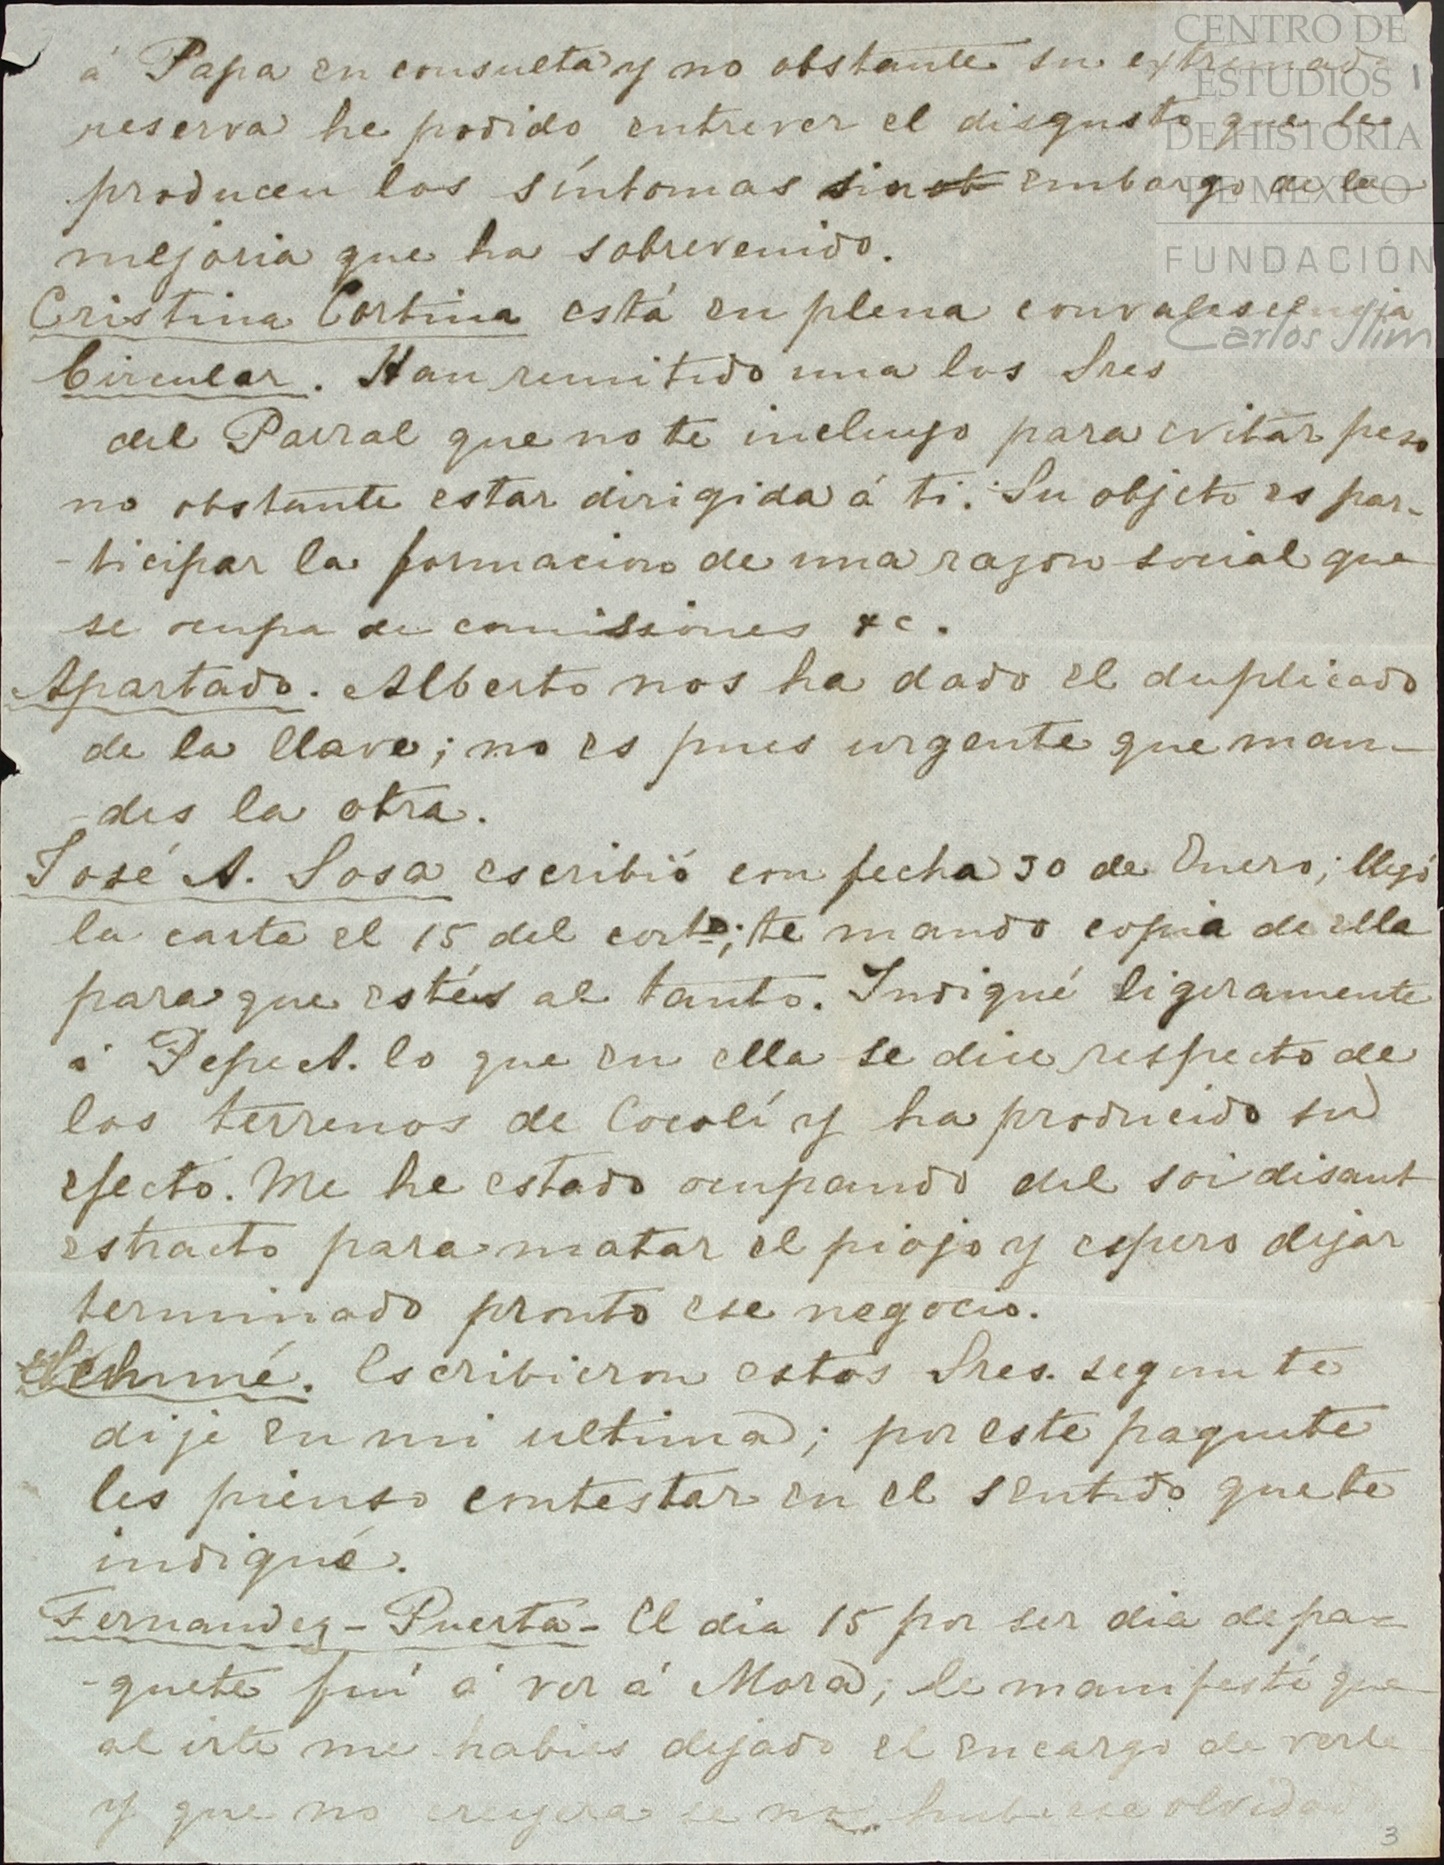 á Papa en consulta y no obstante su extremada
reserva he podido entrever el disgusto que le
producen los síntomas sin ob embargo de la
mejoria que ha sobrevenido.
Cristina Cortina está en plena convalescencia
Circular. Han remitido una los Sres
del Parral que no te incluyo para evitar peso
no obstante estar dirigida á ti. Su objeto es par-
-ticipar la formacion de una razon social que
se ocupa de comisiones &c.
Apartado. Alberto nos ha dado el duplicado
de la llave; no es pues urgente que man-
-des la otra.
José A. Sosa escribió con fecha 30 de Enero; llegó
la carta el 15 del corte; te mando copia de ella
para que estés al tanto. Indiqué ligeramente
á Pepe A. lo que en ella se dice respecto de
los terrenos de Cocolí y ha producido su
efecto. Me he estado ocupando del soi disant
estracto para matar el piojo y espero dejar
terminado pronto ese negocio.
Escribieron estos Sres. segun te
dije en mi ultima; por este paquete
les pienso contestar en el sentido que te
indiqué.
Fernandez - Puerta - El dia 15 por ser dia de pa-
-quete fuí á ver á Mora; le manifesté que
al irte me habias dejado el encargo de verle
y que no creyera se nos hubiese olvidado
3
1
CENTRO DE
ESTUDIOS
DE HISTORIA
DE MEXICO
FUNDACIÓN
Carlos Slim